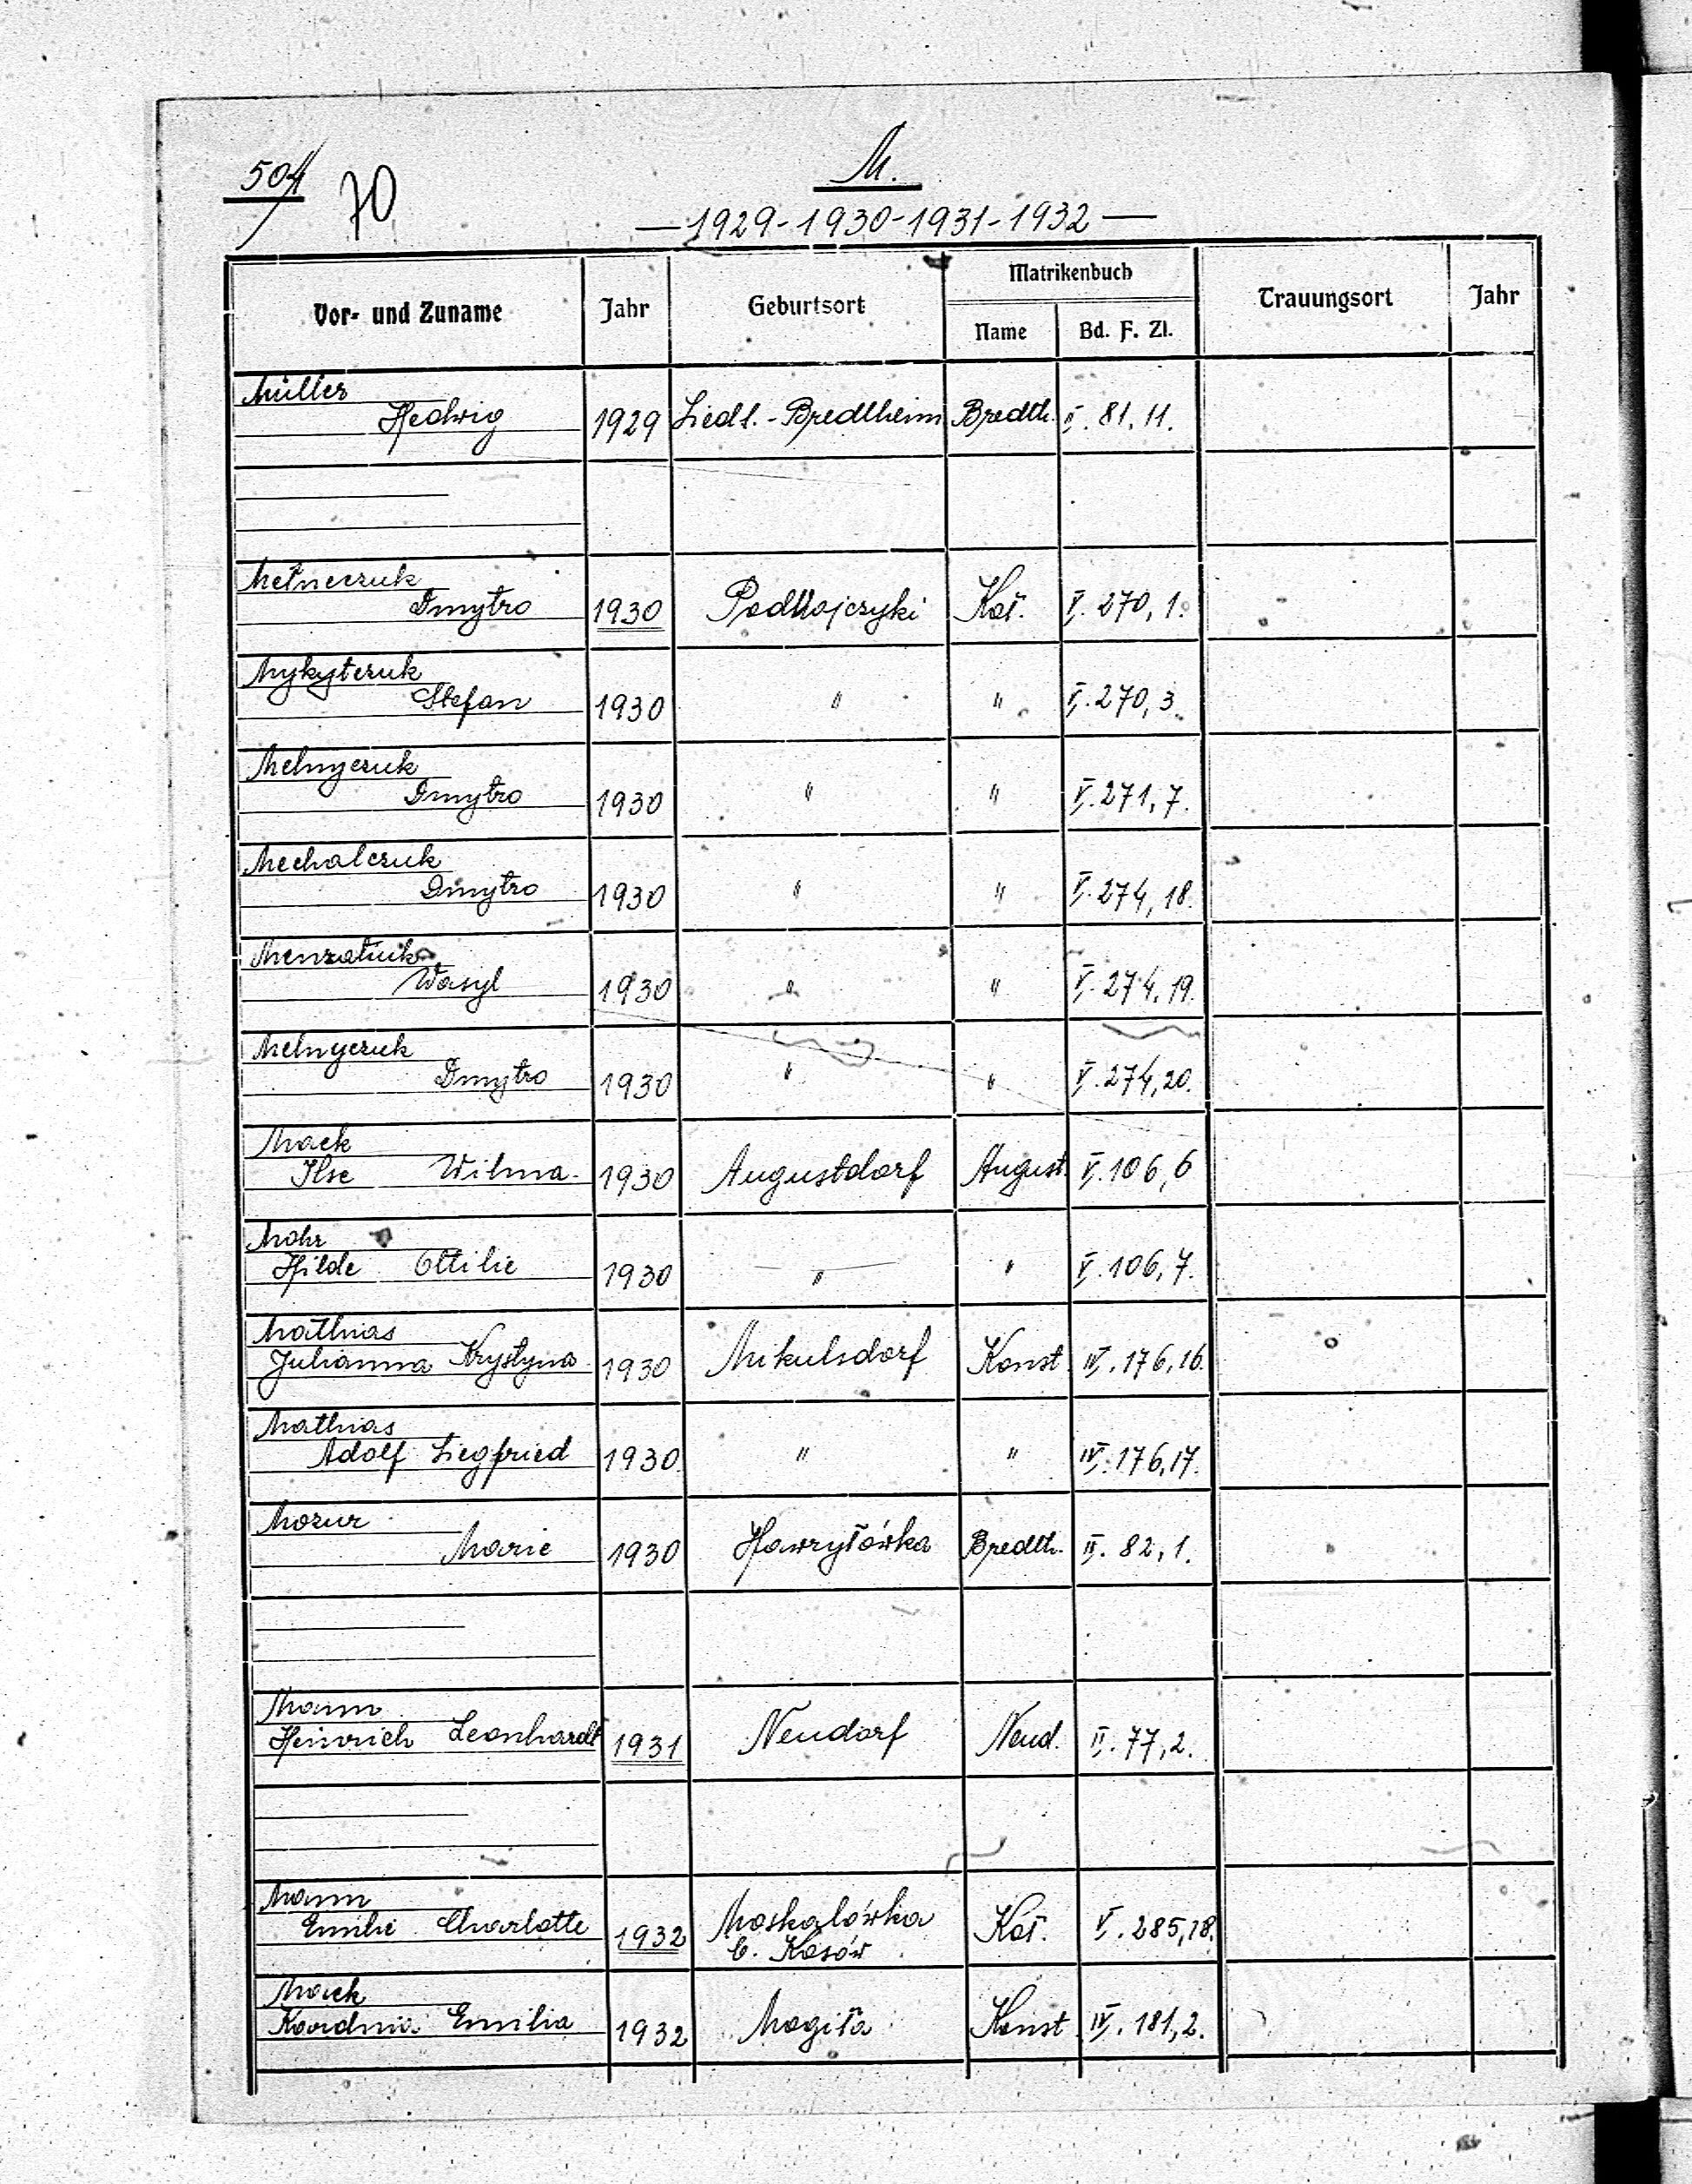 504
70
M.
—1929-1930-1931-1932—
Vor- und Zuname Jahr Geburtsort Matrikenbuch Trauungsort Jahr
Name Bd. F. Zl.
Müller
Hedwig 1929 Siedl.-Bredtheim Bredth. II. 81, 11.
Metneczuk
Dmytro 1930 Podhajczyki Koł. V. 270, 1.
Mykytezuk
Stefan 1930 " " V. 270, 3.
Melnyczuk
Dmytro 1930 " " V. 271, 7.
Mechalczuk
Dmytro 1930 " " V. 274, 18.
Menzatiuk
Wasyl 1930 " " V. 274, 19.
Melnyczuk
Dmytro 1930 " " V. 274, 20.
Mack
Ilse Wilma 1930 Augustdorf August. V. 106, 6
Mohr
Hilde Ottilie 1930 " " V. 106, 7.
Mathias
Julianna Krystyna 1930 Mikulsdorf Konst. IV. 176, 16.
Mathias
Adolf Siegfried 1930 " " IV. 176, 17.
Mozur
Marie 1930 Hawryłówka Bredth. II. 82, 1.
Mann
Heinrich Leonhardt 1931 Neudorf Neud. II. 77, 2.
Mann
Emilie Charlotte 1932 Moskalówka Koł. V. 285, 18.
b. Kosów
Mack
Emilia 1932 Mogiła Konst. IV. 181, 2.